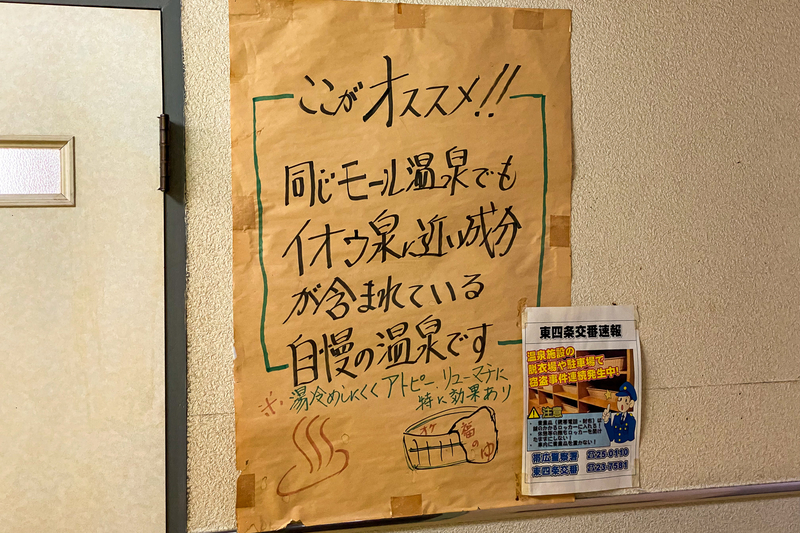 ここがオススメ!!
同じモール温泉でも
イオウ泉に近い成分
が含まれている
自慢の温泉です
※湯冷めしにくくアトピー、リューマチに
特に効果あり
オケ
福のゆ
東四条交番速報
温泉施設の
脱衣場や駐車場で
窃盗事件連続発生中!
注意
帯広警察署 ☎25-0110
東四条交番 ☎23-7581